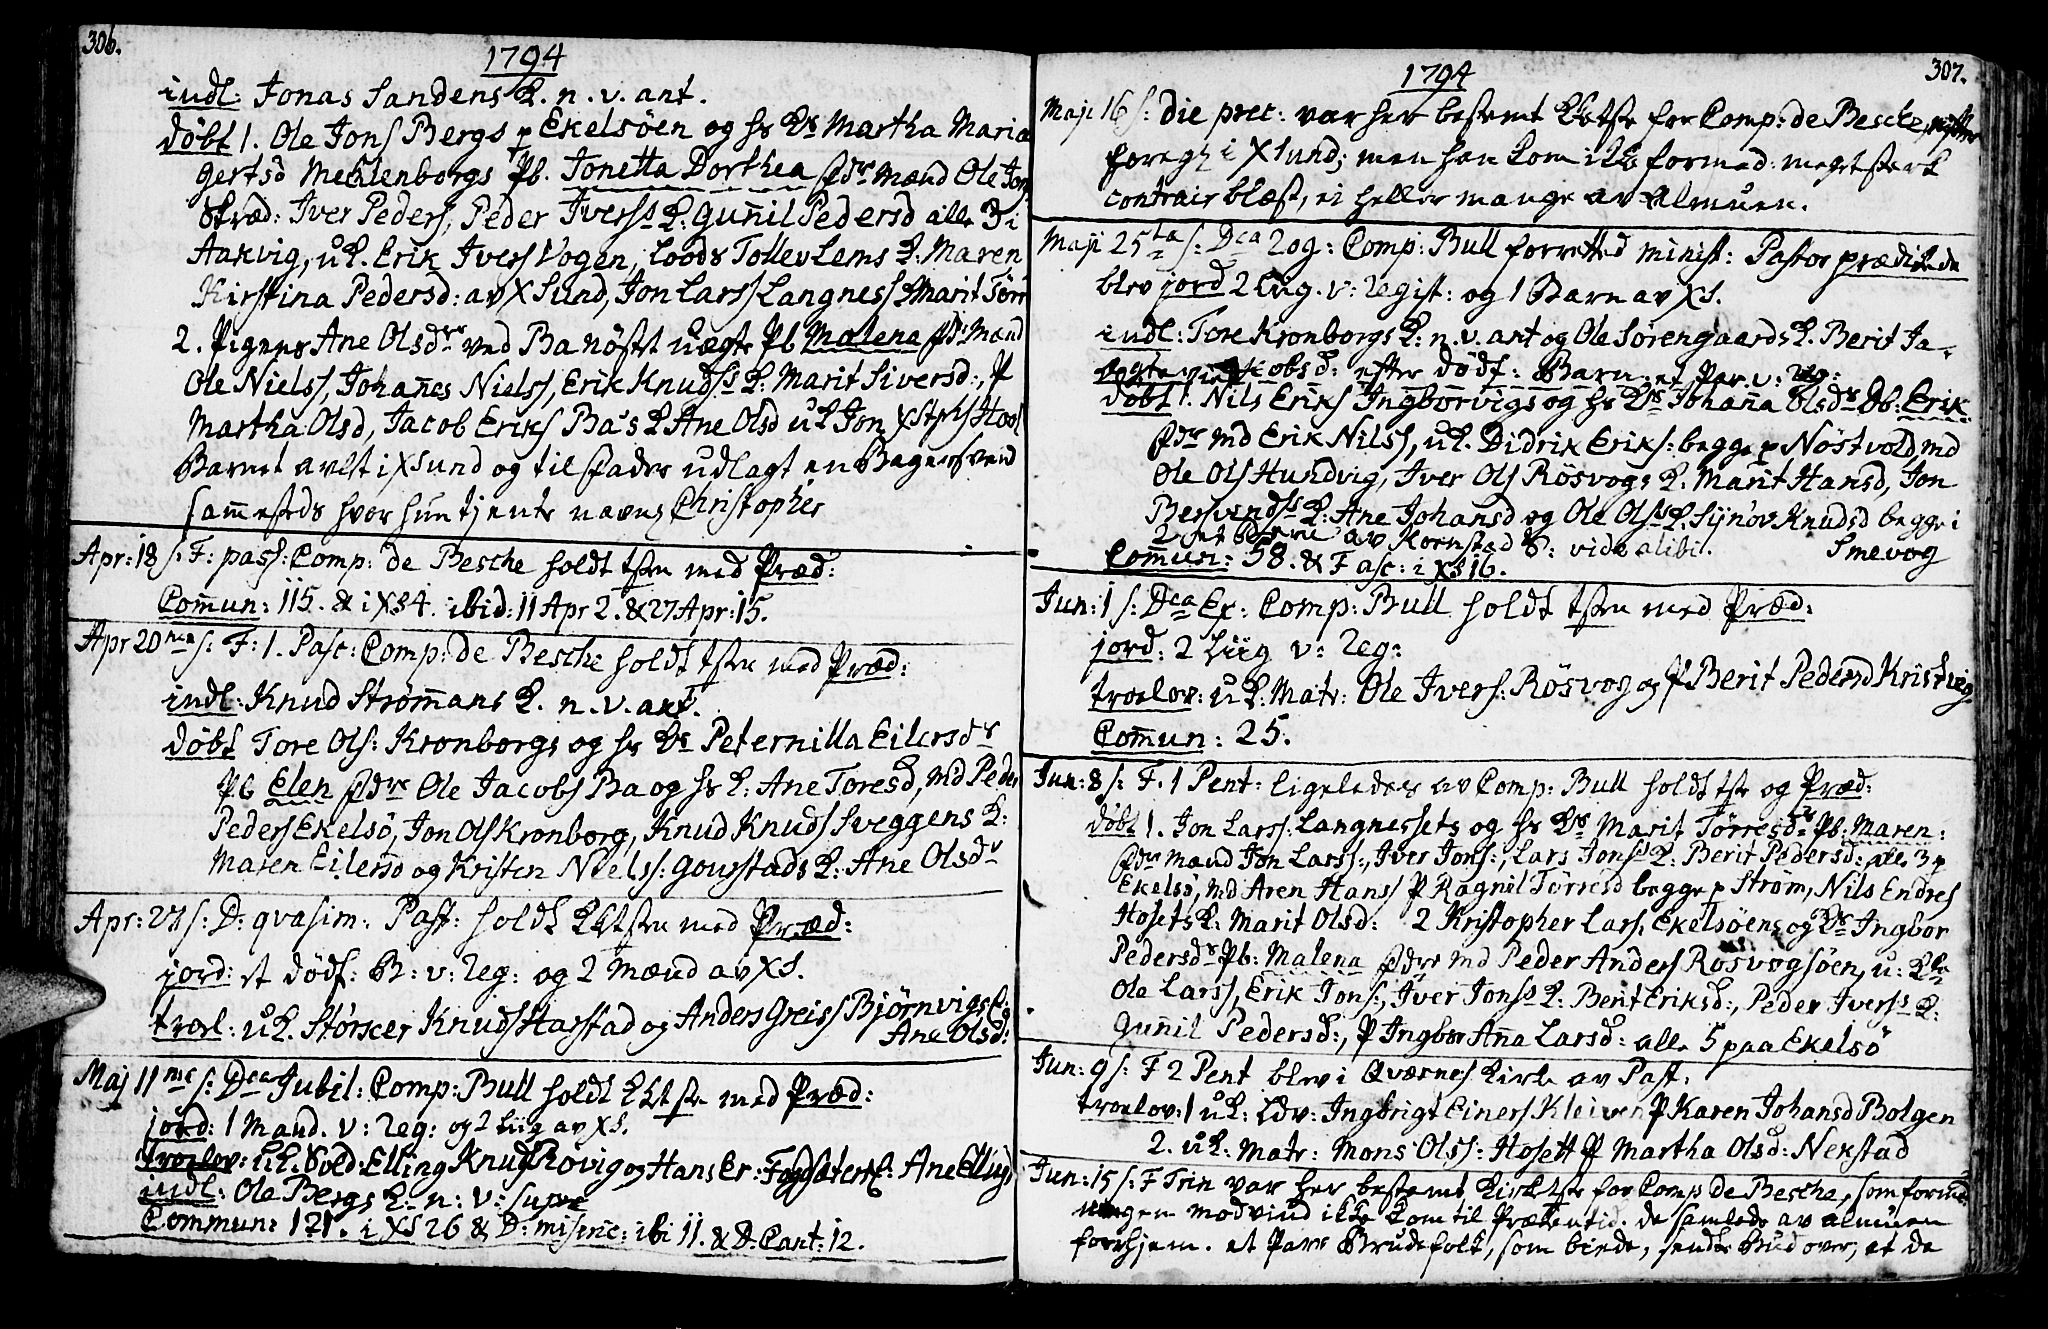 306.
1794
indl: Jonas Sandens K. n. v. ant.
døbt 1. Ole Jons Bergs p Ekelsöen og hs Kr Martha Maria
Gertsd Meklenborgs Pb. Jonetta Dorthea fdr mænd Ole Jons
Iver Peders, Peder Iverss K: Guñil Pedersd alle 3 i
Aakvig, uk. Erik Ivers Vogen, Loods Tollev Lems K: Maren
Kirstina Pedersd: av XSund, Jon Larss Langness K Marit Törr
2. Pigens Ane Olsdr ved Banöstet uægte Pb Malena fdr Mænd
Ole Nielss, Johañes Nielss, Erik Knudss K: Marit Siversd:, P
Martha Olsd, Jacob Eriks Ba's K Ane Olsd uk Jon
Barnet avlet i XSund og til fader udlagt en Bagersvend
sam̄esteds hvor hun tjente navnl Christopher
Apr: 18 s: F: pass: Comp: de Besche holdt tsten med Præd:
Com̄un: 115. & i XS 4. ibid: 11 Apr 2. & 27 Apr: 15.
Apr 20 s: F: 1. Pasc: Comp: de Besche holdt tsten med Præd:
indl: Knud Strøm̄ans K. n. v. ant.
døbt Tore Ols: Kronborgs og hs Kr Peternilla Eilersdr
Pb Elen fdre Ole Jacobs Ba og hs K: Ane Toresd, Md Peder
Peders Ekelsö, Jon Ols Kronborg, Knud Knuds Sveggens K:
Maren Eilersd og Kristen Nielss: Gourstads K: Ane Olsdr
Apr: 27 s: D: qvasim: Past: holdt Ktsten med Præd:
jord: et dödf: B: v: Reg: og 2 Mænd av XS.
trol: uk. Störker Knuds Harstad og Anders Greiss Bjørnvigs E:
Ane Olsd:
Maj 11 s: Dca Jubil: Comp: Bull holdt Ktste med Præd:
jord: 1 Mand. v: Reg: og 2 Liig av XS.
Troelov: uk. Sold: Elling Knuds Røvig og Hans Er: Ane
indl: Ole Bergs K. n: v: supr
Commun: 121. i XS 26 & D: miseric: ibi 11. & D. Cant: 12.
307.
1794
Maji 16 s: die prec: var her bestemt Ktste for Comp: de Besche,
foregl i XSund; men han kom ikke formed: meget sterk
contrair blæst, ei heller mange av Almuen.
Maji 25 s: Dca Rog: Comp: Bull forretted minist: Pastor prædikede
blev jord 2 Liig. v: Regist: og 1 Barn av XS.
indl: Tore Kronborgs K: n. v. ant og Ole Sörengaards K. Berit Ja-
kobsd: efter dödf: Barn: et Par. v: Reg:
døbt 1. Nils Eriks Ingborvigs og hs Kr Johaña Olsdr Db: Erik
fdre md Erik Nilss, uk. Didrik Eriks: begge p Nöstvold, md
Ole Ols Hundvig, Iver Ols Rösvogs K. Marit Hansd, Jon
K: Ane Johansd og Ole Olss K. Synöv Knudsd begge i
Smevog
2 av Kornstad S: vide alibi.
Com̄un: 58. & F asc: i XS 16.
Jun: 1 s: Dca Ex: Comp: Bull holdt tsten med Præd:
jord: 2 Liig v: Reg:
troelov: uk. Matr: Ole Ivers: Rösvog og P Berit Pedersd Kristvig
Com̄un: 25.
Jun: 8 s: F. 1 Pent: ligeledes av Comp: Bull holdt tste og Præd:
döbt 1. Jon Larss: Langnessets og hs Kr Marit Törresdr Pb: Maren:
fdre Mænd Jon Larss:, Iver Jons:, Lars Jonss K: Berit Pedersd: alle 3 p
Ekelsö, md Aren Hanss P Ragnel Törresd begge p Strøm, Nils Endres
Hosets K: Marit Olsd: 2 Kristopher Lars: Ekelsöens og Kr Ingbor
Pedersdr Pb: Malena fdre md Peder Anders Rösvogsöen, u: K
Ole Larss, Erik Jons:, Iver Jonss K: Berit Eriksd:, Peder Iverss K:
Guñil Pedersd:, P Ingbor Aña Larsd: alle 5 paa Ekelsö
Jun: 9 s: F 2 Pent blev i Qværnes Kirke av Past:
troelov: 1 uk: Ldv: Ingbrigt Einers Kleiven P Karen Johansd Bolgen
2. uk: Matr: Mons Olss: Hosett P Martha Olsd: Nekstad
Jun: 15 s: F Trin var her bestemt Kirketste for Comp de Besche, som formed:
megen modvind ikke kom til Prækentid. de samlede av almuen
foer hjem. et Par Brudefolk, som biede, sendte Bud over, at de